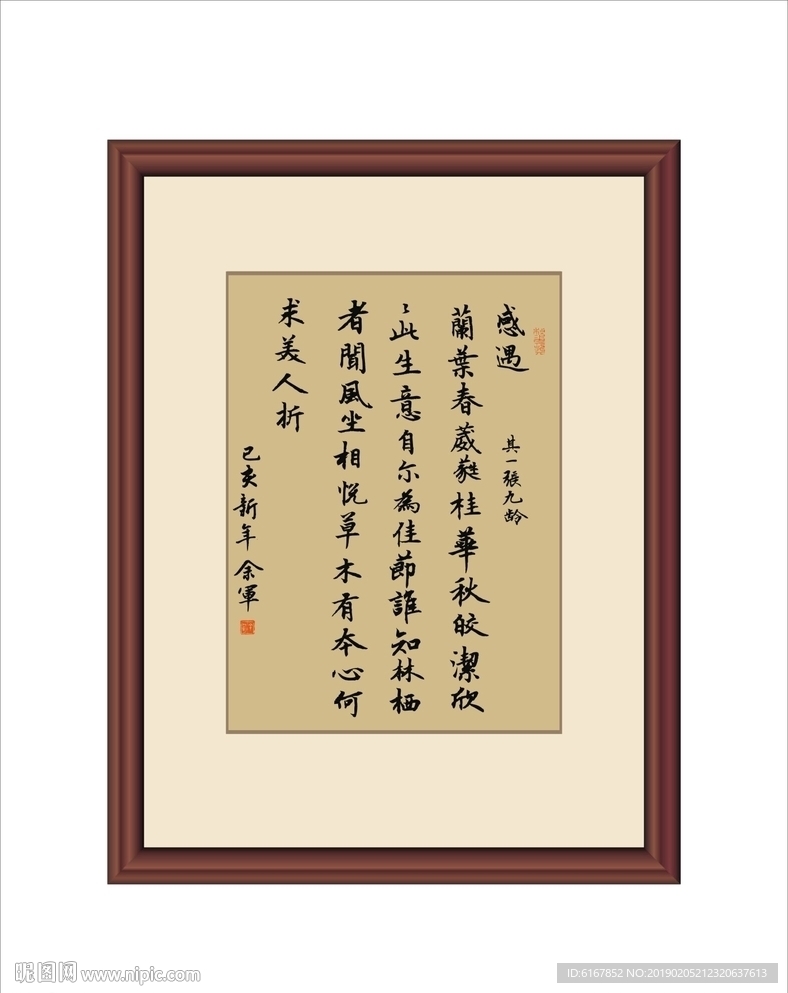 感遇
其一張九龄
蘭葉春葳蕤桂華秋皎潔欣
〻此生意自尔為佳節誰知林栖
者聞風坐相悅草木有本心何
求美人折
己亥新年 余軍
昵图网 www.nipic.com
ID:6167852 NO:20190205212320637613